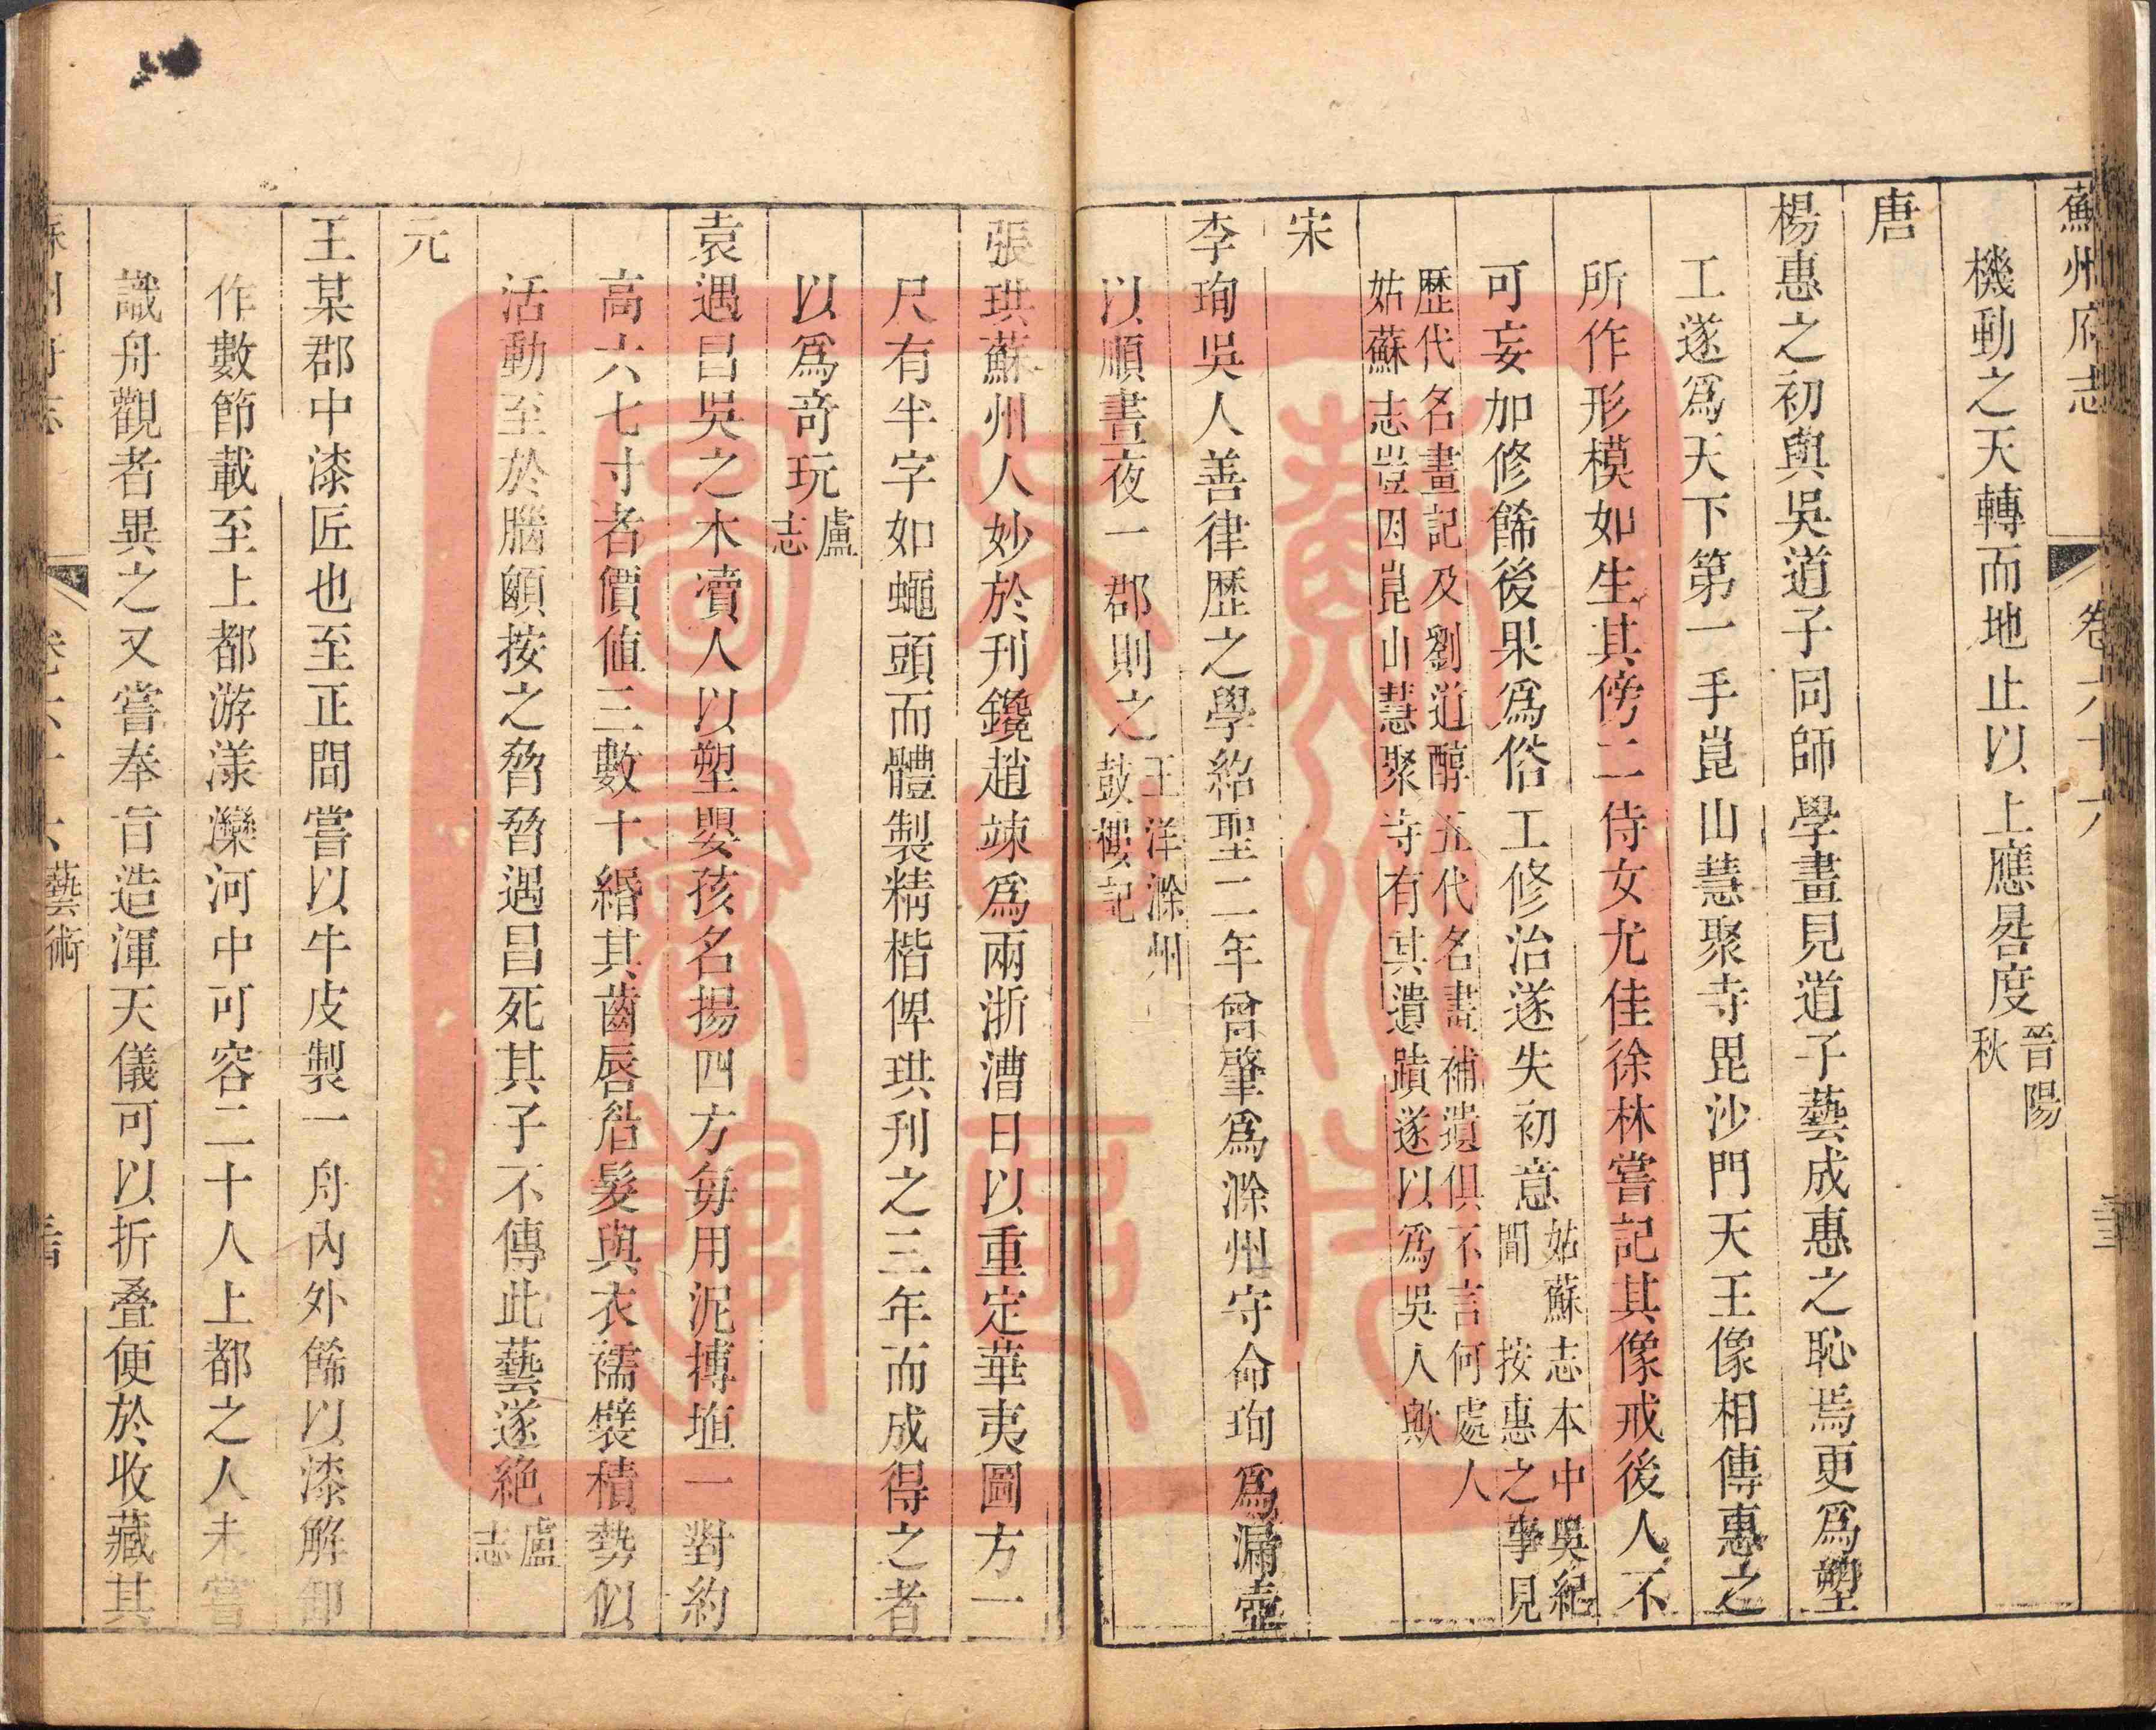 蘇州府志 卷六十六
機動之天轉而地止以上應晷度晉陽秋
唐
楊惠之初與吳道子同師學畫見道子藝成惠之恥焉更爲塑
工遂爲天下第一手崑山慧聚寺毘沙門天王像相傳惠之
所作形模如生其傍二侍女尤佳徐林嘗記其像戒後人不
可妄加修餙後果爲俗工修治遂失初意姑蘇志本中吳紀聞 按惠之事見
歷代名畫記及劉道醇五代名畫補遺俱不言何處人
姑蘇志豈因崑山慧聚寺有其遺蹟遂以爲吳人歟
宋
李珣吳人善律歷之學紹聖二年曾肇爲滁州守命珣爲漏壺
以順晝夜一郡則之王洋滁州鼓樓記
張珙蘇州人妙於刊鑱趙竦爲兩浙漕日以重定華夷圖方一
尺有半字如蠅頭而體製精楷俾珙刊之三年而成得之者
以爲奇玩盧志
袁遇昌吳之木瀆人以塑嬰孩名揚四方每用泥摶埴一對約
高六七寸者價値三數十緡其齒唇眉髮與衣襦襞積勢似
活動至於腦顖按之脅脅遇昌死其子不傳此藝遂絕盧志
元
王某郡中漆匠也至正間嘗以牛皮製一舟內外餙以漆解卸
作數節載至上都游漾灤河中可容二十人上都之人未嘗
識舟觀者異之又嘗奉旨造渾天儀可以折疊便於收藏其
蘇州府志 卷六十六 藝術